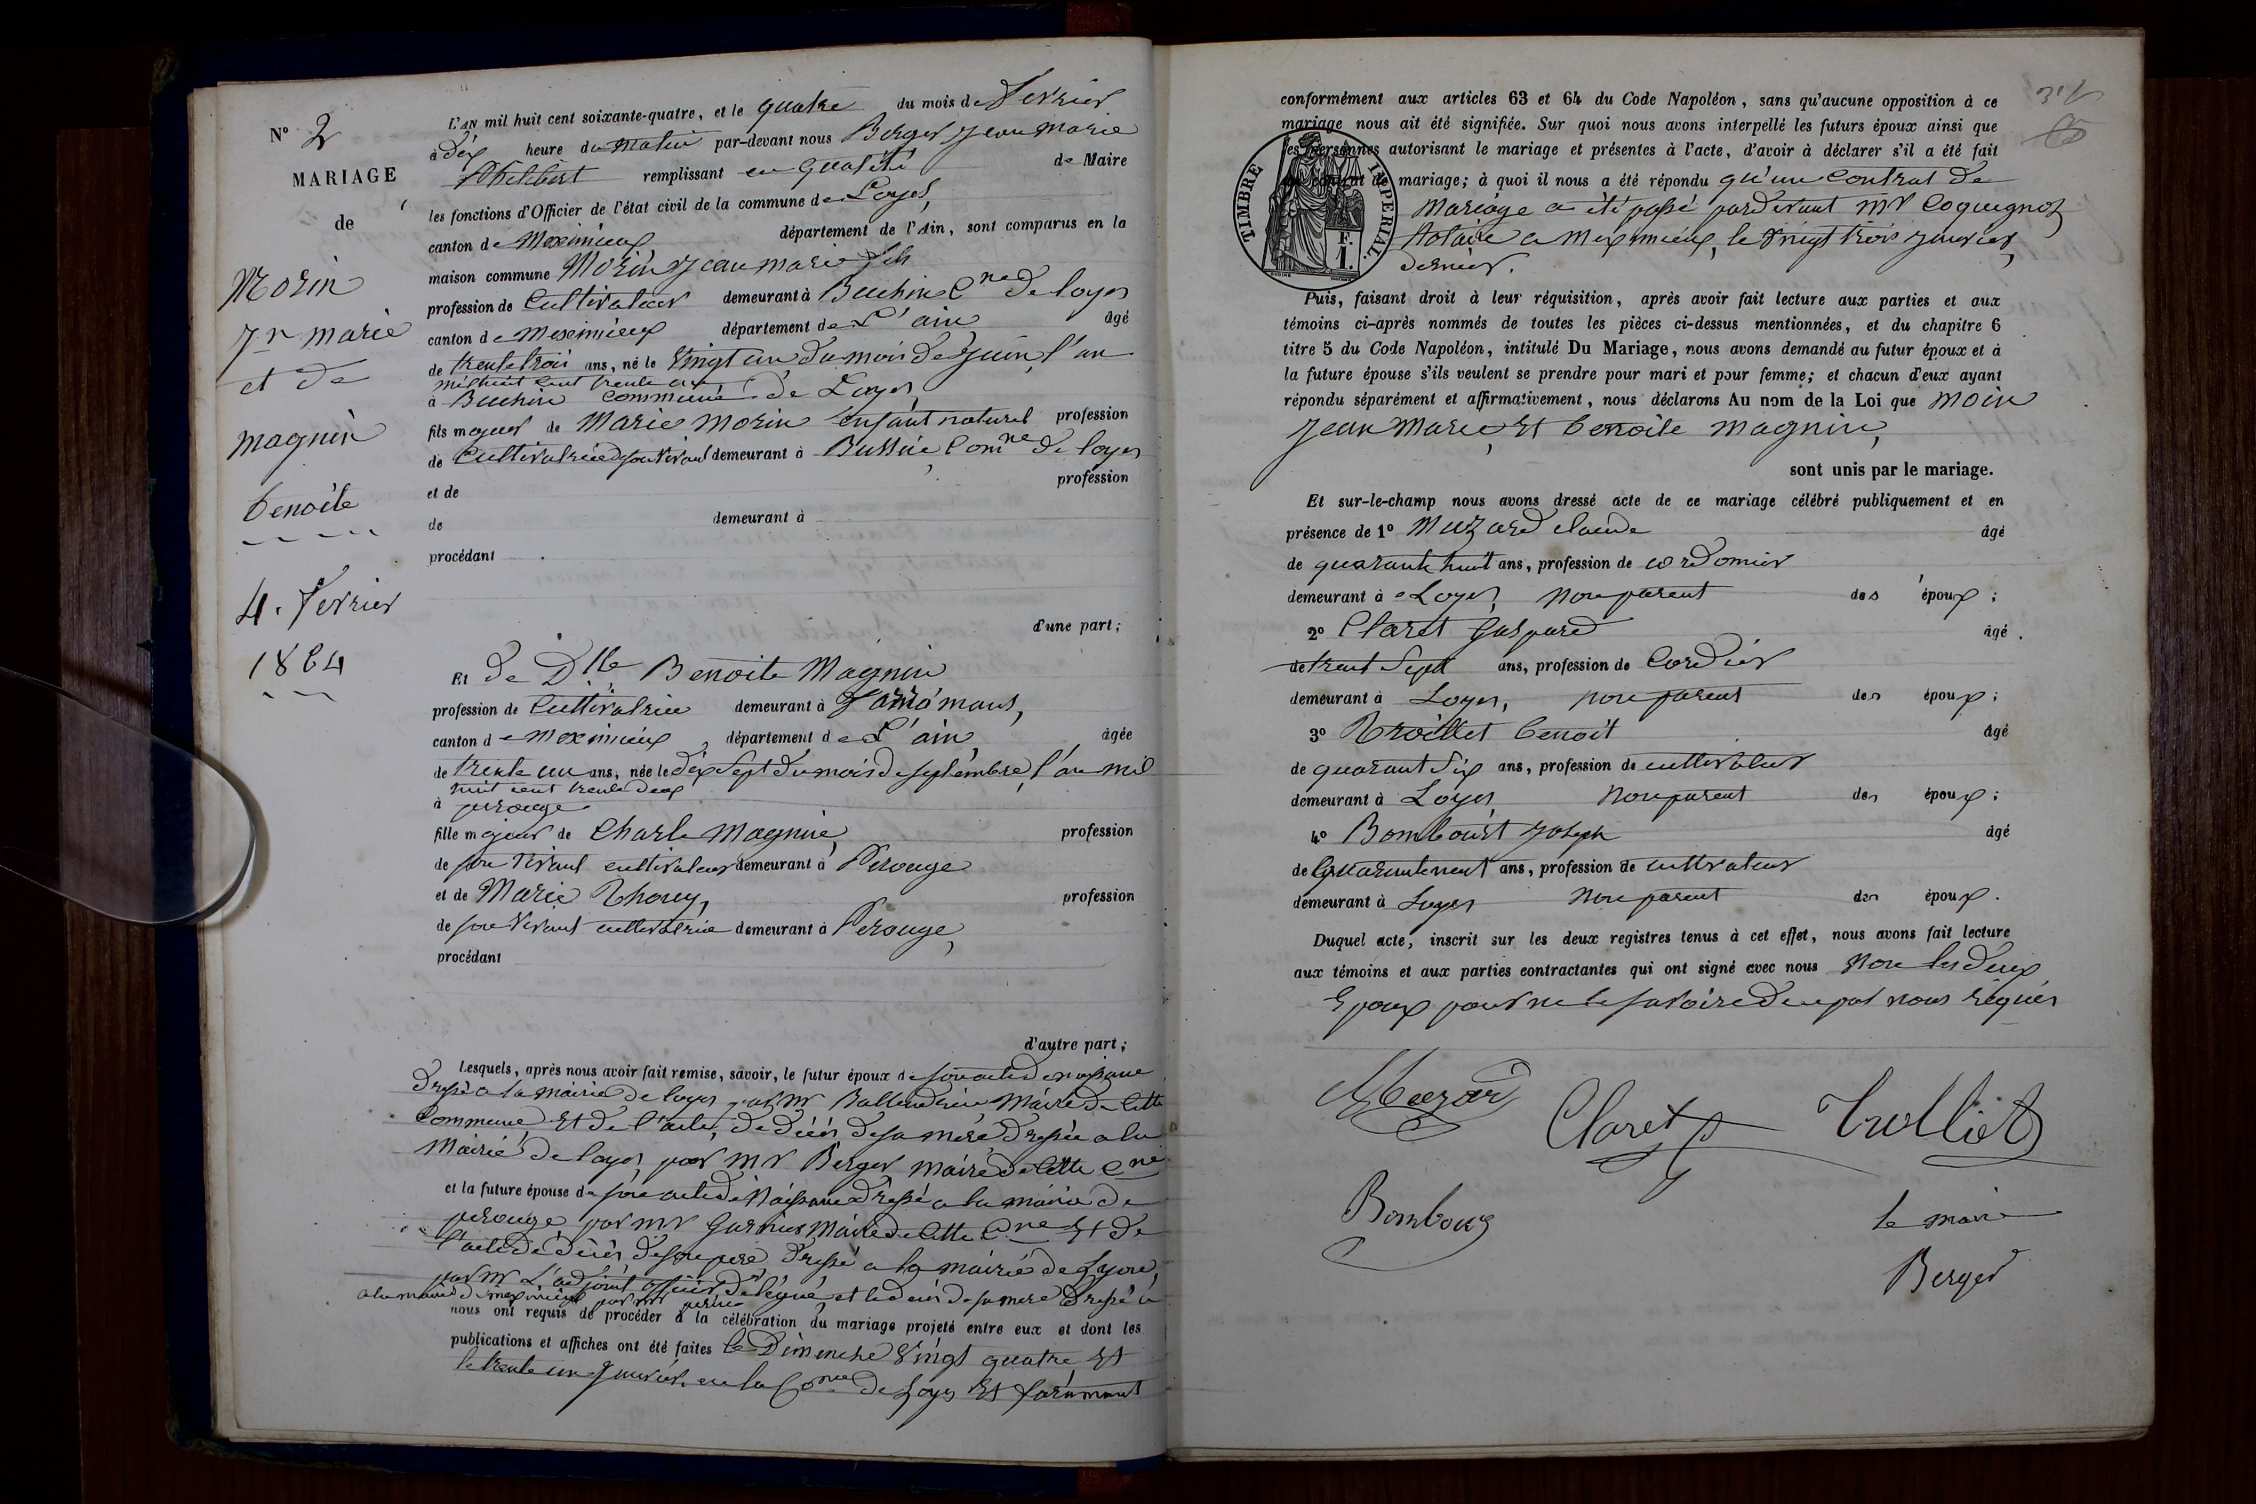 N° 2
MARIAGE
de
Morin
Jn marie
et de
magnin
benoite
4. fevrier
1864
L'AN mil huit cent soixante-quatre, et le quatre du mois de fevrier
à dix heure du matin par-devant nous Berger Jean marie
Philibert remplissant en qualité de Maire
les fonctions d'Officier de l'état civil de la commune de Loyes,
canton de Meximieux département de l'Ain, sont comparus en la
maison commune Morin Jean marie fils
profession de Cultivateur demeurant à Buchin Cne de loyes
canton de meximieux département de L'ain âgé
de trente trois ans, né le Vingt un du mois de Juin, l'an
mil huit cent trente un
à Buchin commune de Loyes,
fils majeur de Marie Morin enfant naturel profession
de Cultivatrice de son vivant demeurant à Comne de loyes
et de profession
de demeurant à
procédant
d'une part;
Et de Dlle Benoite Magnin
profession de Cultivatrice demeurant à
canton de meximieux, département de L'ain, âgée
de trente un ans, née le dix sept du mois de septembre, l'an mil
huit cent trente deux
à perouge
fille majeur de Charle Magnin, profession
de son vivant cultivateur demeurant à Perouge
et de Marie Thouy, profession
de son vivant cultivatrice demeurant à Perouge,
procédant
d'autre part;
Lesquels, après nous avoir fait remise, savoir, le futur époux de son acte de naissance
dressé a la mairie de loyes par mr Maire de Cette
Commune, Et de l'acte, de décés de sa mère dressée a la
Mairie de loyes, par mr Berger maire de Cette Cne
et la future épouse de son acte de Naissance dressé a la mairie de
perouge par mr Garnier Maire de Cette Cne Et de
l'acte de décès de son pere dressé a la mairie de Lyon,
par mr L'adjoint officier délégué, et le decès de sa mere dressé a
a la mairie de meximieux par mr
nous ont requis de procéder à la célébration du mariage projeté entre eux et dont les
publications et affiches ont été faites le Dimenche Vingt quatre Et
le trente un Janvier en la Cone de Loyes Et
conformément aux articles 63 et 64 du Code Napoléon, sans qu'aucune opposition à ce
mariage nous ait été signifiée. Sur quoi nous avons interpellé les futurs époux ainsi que
les personnes autorisant le mariage et présentes à l'acte, d'avoir à déclarer s'il a été fait
un contrat de mariage; à quoi il nous a été répondu qu'un Contrat de
Mariage a été passé pardevant mr Coquegnot
Notaire a meximieux, le Vingt trois janvier
dernier.
TIMBRE IMPERIAL.
F.
1.
Puis, faisant droit à leur réquisition, après avoir fait lecture aux parties et aux
témoins ci-après nommés de toutes les pièces ci-dessus mentionnées, et du chapitre 6
titre 5 du Code Napoléon, intitulé Du Mariage, nous avons demandé au futur époux et à
la future épouse s'ils veulent se prendre pour mari et pour femme; et chacun d'eux ayant
répondu séparément et affirmativement, nous déclarons Au nom de la Loi que Moin
Jean Marie, Et benoite magnin,
sont unis par le mariage.
Et sur-le-champ nous avons dressé acte de ce mariage célébré publiquement et en
présence de 1° Muzard claude âgé
de quarante huit ans, profession de cordonier
demeurant à Loyes, non parent des époux;
2° Claret Gaspard âgé
de trent Sept ans, profession de Cordier
demeurant à Loyes, non parent des époux;
3° Trolliet benoit âgé
de quarant Six ans, profession de cultivateur
demeurant à Loyes, non parent des époux;
4° Bombourt Joseph âgé
de quarant neuf ans, profession de cultivateur
demeurant à Loyes non parent des époux.
Duquel acte, inscrit sur les deux registres tenus à cet effet, nous avons fait lecture
aux témoins et aux parties contractantes qui ont signé avec nous Non les deux
Epoux pour ne le savoire de ce par nous réquis
Muzard
Claret
Trolliet
Bombour
le maire
Berger